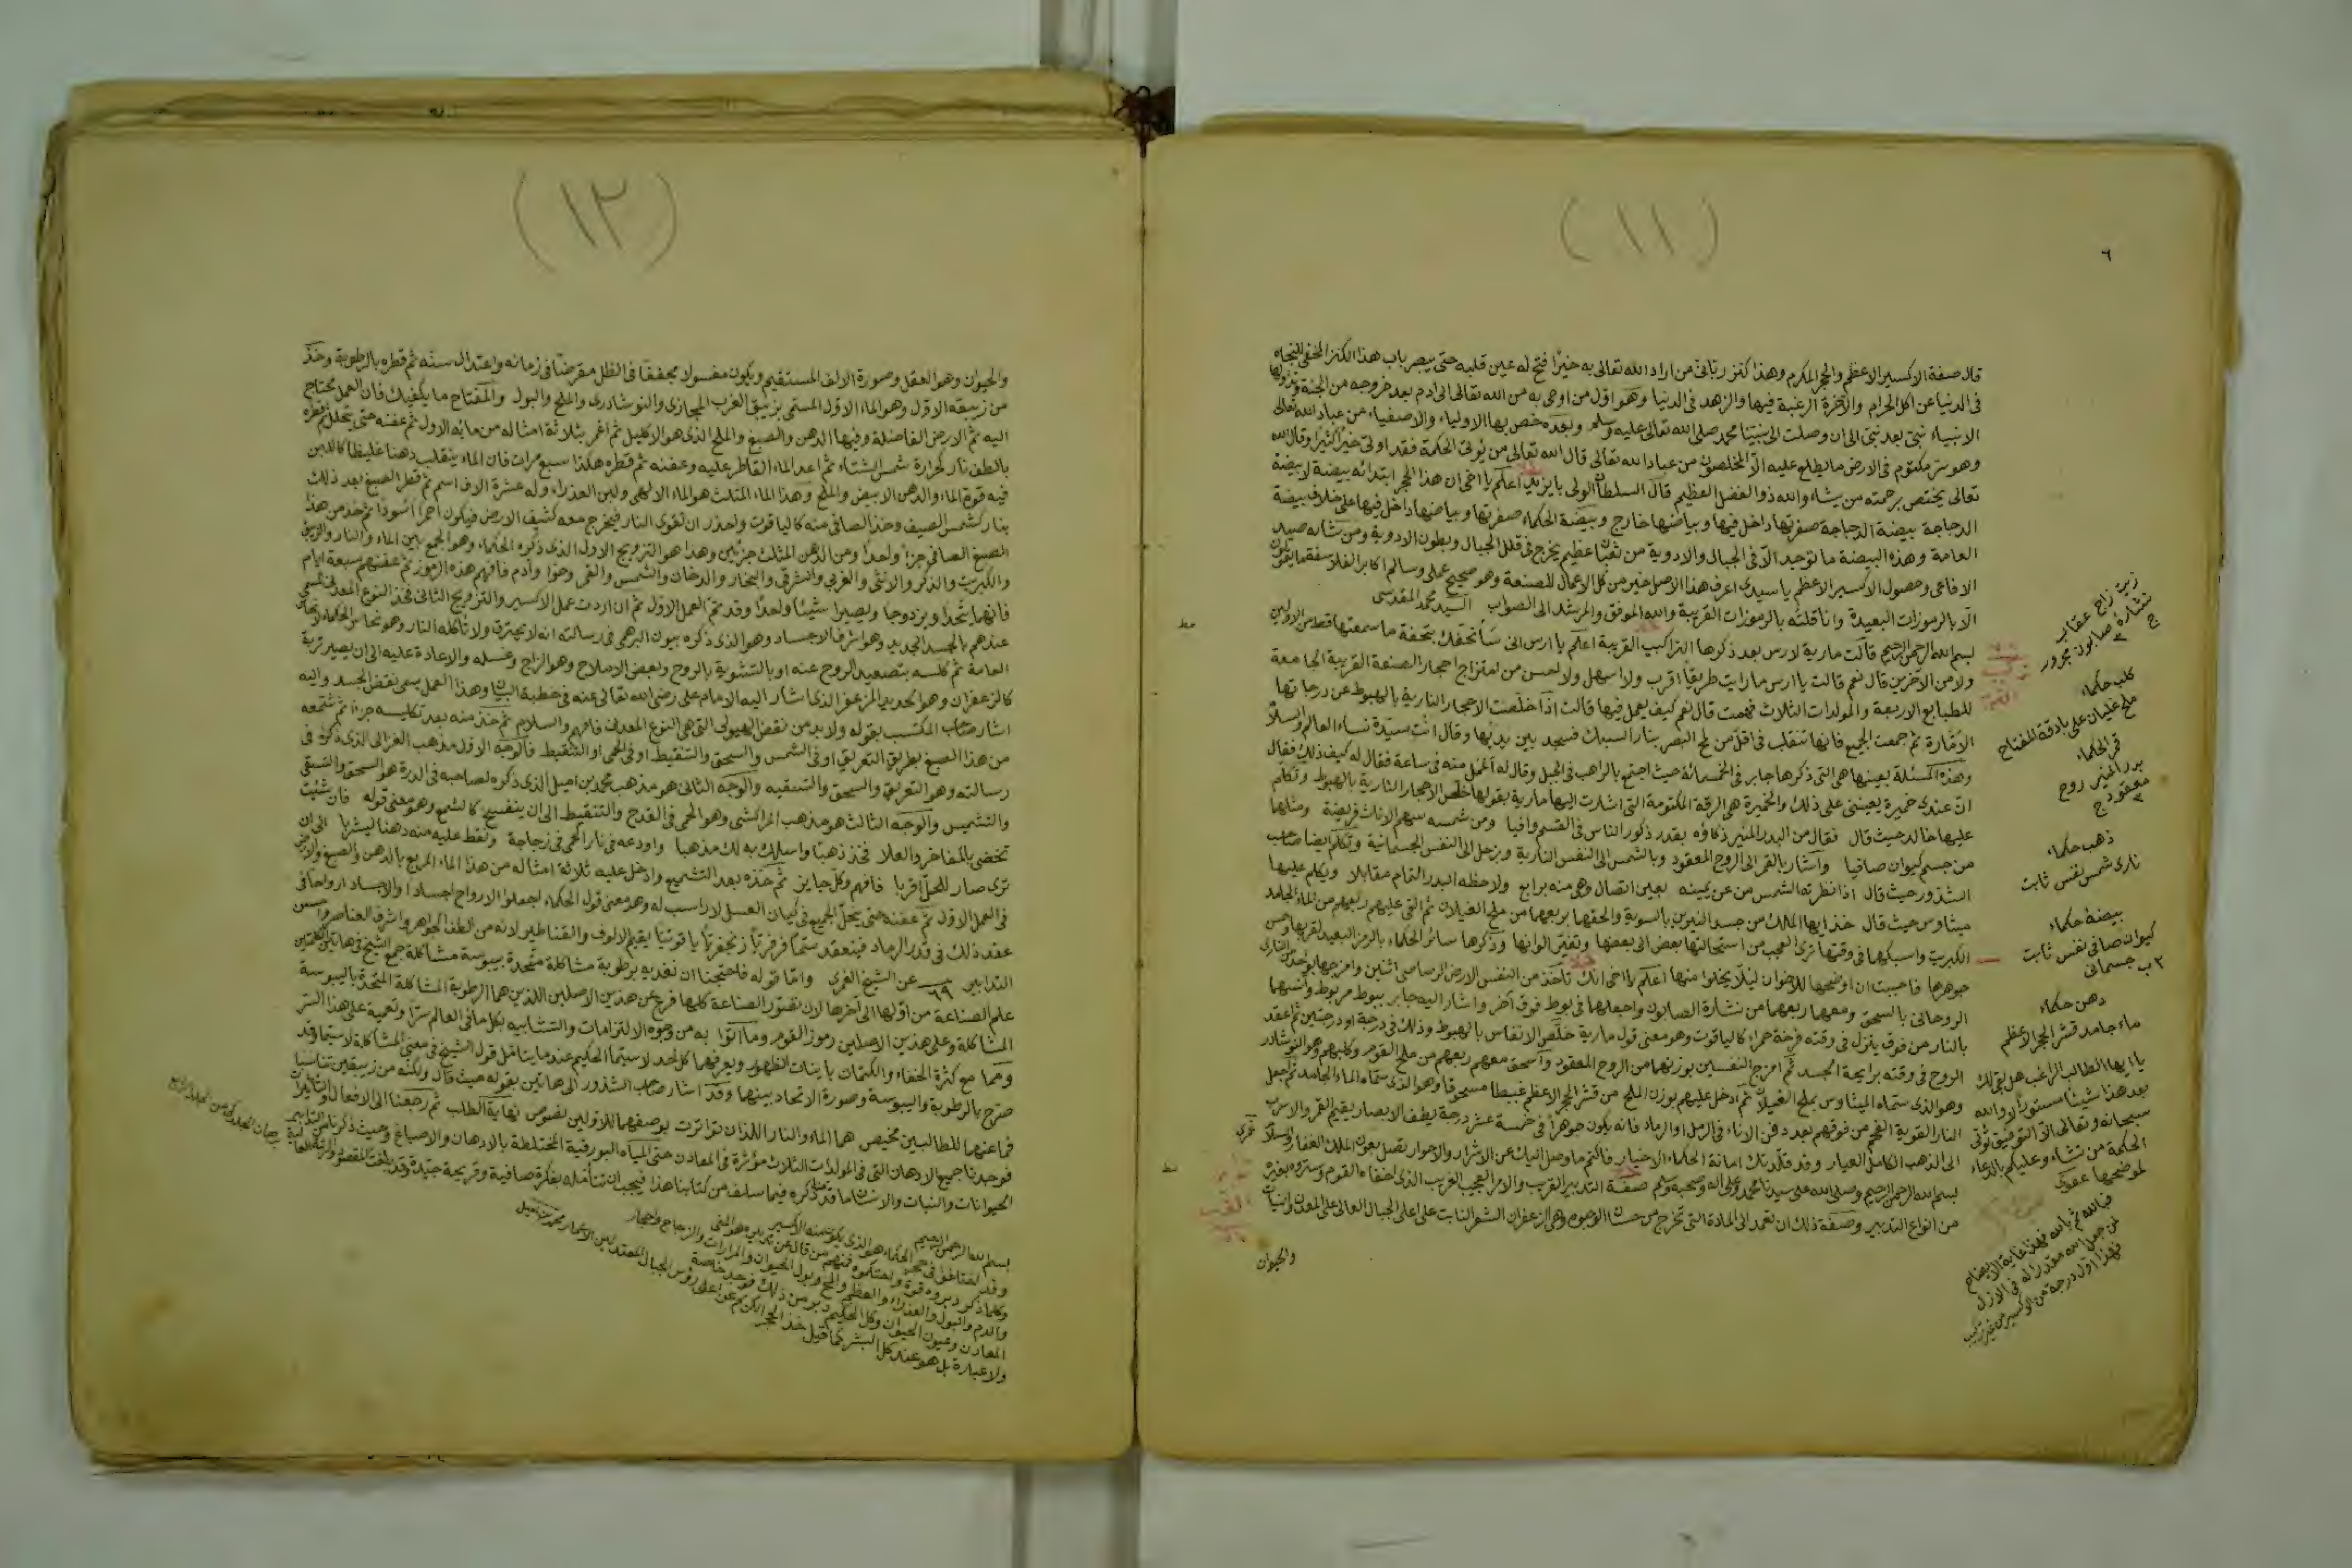 (١١)
٦
قال صفة الاكسير الاعظم والحجر المكرم وهذا كنز ربانى من اراد الله تعالى به خيرًا فتح له عين قلبه حتى يبصر باب هذا الكنز الخفى
فى الدنيا عن اكل الحرام والآخرة الرغبة فيها والزهد فى الدنيا وهو اول من اوحى به من الله تعالى الى ادم بعد خروجه من الجنة
الانبياء نبى بعد نبى الى ان وصلت الى نبينا محمد صلى الله تعالى عليه وسلم وبعده خص بها الاولياء والاصفياء من عباد الله تعالى
وهو سر مكتوم فى الارض ما يطلع عليه الا المخلصون من عباد الله تعالى قال الله تعالى من يؤتى الحكمة فقد اوتى خيرًا كثيرًا وقال الله
تعالى يختص برحمته من يشاء والله ذو الفضل العظيم قال السلطان الولى بايزيد اعلم يا اخى ان هذا الحجر ابتدائه بيضة لا بيضة
الدجاجة بيضة الدجاجة صفرتها داخل فيها وبياضها خارج وبيضة الحكماء صفرتها وبياضها داخل فيها على خلاف بيضة
العامة وهذه البيضة ما توجد الا فى الجبال والاودية من ثعبان عظيم يخرج فى قلل الجبال وبطون الاودية ومن شانه صيد
الافاعى وحصول الاكسير الاعظم يا سيدى اعرف هذا الاصل خير من كل الاعمال للصنعة وهو صحيح
الا بالرموزات البعيدة وانا قلته بالرموزات القريبة والله الموفق والمرشد الى الصواب السيد محمد المقدسى
بسم الله الرحمن الرحيم قالت مارية لارس بعد ذكرها التراكيب القريبة اعلم يا ارس انى سأتحفك بتحفة ما سمعتها قط من الاولين
ولا من الآخرين قال نعم قالت يا ارس ما رايت طريقًا اقرب ولا اسهل ولا احسن من امتزاج احجار الصنعة القريبة الجامعة
للطبايع الاربعة والمولدات الثلاث فهمت قال نعم كيف يعمل فيها قالت اذا خلصت الاحجار النارية بالهبوط عن درجاتها
الامارة ثم جمعت الجميع فانها تنقلب فى اقل من لمح البصر بنار السبك فسجد بين يديها وقال انت سيدة نساء العالم
وهذه المسئلة بعينها هى التى ذكرها جابر فى الخمسمائة حيث اجتمع بالراهب فى الجبل وقال له أعمل منه فى ساعة فقال له كيف ذلك فقال
ان عندى خميرة يعيننى على ذلك والخميرة هى الرقة المكتومة التى اشارت اليها مارية بقولها خلص الاحجار النارية بالهبوط وتكلم
عليها خالد حيث قال فقال من البدر المنير ذكاؤه بقدر ذكور الناس فى القسم وافيا ومن شمسه سهم الاناث فريضة ومثلها
من جسم كيوان صافيا وأشار بالقمر الى الروح المعقود وبالشمس الى النفس النارية وبزحل الى النفس الجسمانية وتكلم ايضا صاحب
الشذور حيث قال اذا نظرته الشمس من عن يمينه بعين اتصال وهى منه برابع ولاحظه البدر التمام مقابلا ويكلم عليها
ميثاوس حيث قال خذ ايها الملك من جسد النيرين بالسوية والحقها بربعها من ملح الغيلان ثم القى عليهم ربعهم من الماء الجامد
الكبريت واسبكها فى وقتها ترى العجب من استحالتها بعض الى بعضها وتغير الوانها وذكرها سائر الحكماء بالرمز البعيد لقربها وحسن
جوهرها فاحببت ان اوضحها للاخوان ليلا يخلوا منها اعلم يا اخى انك تأخذ من النفس الارض الرصاصى اثنين وامزجها
الروحانى بالسحق ومعهما ربعهما من نشارة الصابون واجعلهما فى بوط فوق آخر واشار اليه جابر ببوط مربوط
بالنار من فوق ينزل فى وقته فرخة حمراء كالياقوت وهو معنى قول مارية خلص الانفاس بالهبوط وذلك فى درجة او درجتين ثم اعقد
الروح فى وقته برايحة الجسد ثم امزج النفسين بوزنهما من الروح المعقود وأسحق معهم ربعهم من ملح القوم وكلبهم وهو النوشادر
وهو الذى سماه الميثاوس بملح الغيلان ثم أدخل عليهم بوزن الملح من قشر الحجر الاعظم مسحوقا وهو الذى سماه الماء الجامد ثم اجعل
النار القوية الفحم من فوقهم بعد دفن الاناء فى الرمل او الرماد فانه يكون جوهرًا فى خمسة عشر درجة يطف الابصار يقيم القمر والاسرب
الى الذهب الكامل العيار وقد قلدتك امانة الحكماء الاخيار فاكتم ما وصل اليك عن الاشرار
بسم الله الرحمن الرحيم وصلى الله على سيدنا محمد وعلى اله وصحبه وسلم صفة التدبير القريب والامر العجيب الغريب الذى اخفاه القوم
من انواع التدبير وصفة ذلك ان تعمد الى المادة التى تخرج من حسان الوجوه وهى الزعفران الشعر النابت على اعلى الجبال العالى على المعدن والنبات
والحيوان
زيت زاج عقاب
نشارة صابون مجرور
كلب حكماء
ملح غليان على بادقة المفتاح
قمر الحكماء
بدر المنير روح
معقود
ذهب حكماء
نارى شمس نفس ثابت
بيضة حكماء
كيوان صافى نفس ثابت
جسمانى
دهن حكماء
ماء جامد قشر الحجر الاعظم
يا ايها الطالب الراغب هل بقى لك
بعد هذا شيئا مستورا لا والله
سبحانه وتعالى الا التوفيق تؤتى
الحكمة من تشاء وعليكم بالدعاء
لموضحها عفوك
فبالله ثم بالله فهذا غاية الايضاح
لمن جعل الله مقدرا له فى الازل
فهذا اول درجة من الاكسير من غير تركيب
(١٢)
والحيوان وهو العقل وصورة الالف المستقيم ويكون مغسولا مجففا فى الظل مقرضا فى زمانه واعتدال سنه ثم قطره بالرطوبة وخذ
من زيبقه الاول وهو الماء الاول المسمى بزيبق الغرب المجازى والنوشادرى والملح والبول والمفتاح ما يكفيك فان العمل محتاج
اليه ثم الارض الفاضلة وفيها الدهن والصبغ والملح الذى هو الاكليل ثم اغمر بثلاثة امثاله من مائه الاول ثم عفنه حتى ينحل ثم قطره
بالطف نار كحرارة شمس الشتاء ثم اعد الماء القاطر عليه وعفنه ثم قطره هكذا سبع مرات فان الماء ينقلب دهنا غليظا كاللبن
فيه قوة الماء والدهن الابيض والملح وهذا الماء المثلث هو الماء الالهى ولبن العذراء وله عشرة الاف اسم ثم قطر الصبغ بعد ذلك
بنار كشمس الصيف وخذ الصافى منه كالياقوت واحذر ان تقوى النار فيخرج معه كشيف الارض فيكون احمرًا أسودًا ثم خذ من هذا
الصبغ الصافى جزءًا واحدًا ومن الدهن المثلث جزئين وهذا هو التزويج الاول الذى ذكره الحكماء وهو الجمع بين الماء والنار والزيبق
والكبريت والذكر والانثى والغربى والشرقى والبخار والدخان والشمس والقمر وحوا وآدم فافهم هذه الرموز ثم عفنهم سبعة ايام
فانهما يتحدا ويزدوجا ويصيرا شيئًا واحدًا وقد تم العمل الاول ثم ان اردت عمل الاكسير والتزويج الثانى فخذ النوع المعدنى
عندهم بالجسد الجديد وهو اشرف الاجساد وهو الذى ذكره بيون البرهمى فى رسالته انه لا يحترق ولا تأكله النار وهو نحاس الحكماء
العامة ثم كلسه بتصعيد الروح عنه او بالتشوية بالروح وبعض الاملاح وهو الزاج وغسله والاعادة عليه الى ان يصير تربة
كالزعفران وهو الحديد المزعفر الذى اشار اليه الامام على رضى الله تعالى عنه فى خطبة البيان وهذا العمل يسمى نقض الجسد واليه
اشار صاحب المكتسب بقوله ولا بد من نقض الهيولى التى هى النوع المعدنى فافهم والسلام ثم خذ منه بعد تكليسه جزءًا ثم شمعه
من هذا الصبغ بطريق التعريق او فى الشمس والسحق والتنقيط او فى الحمى او التنقيط فالوجه الاول مذهب الغزالى الذى ذكره فى
رسالته وهو التعريق والسحق والتسقيه والوجه الثانى هو مذهب محمد بن اميل الذى ذكره لصاحبه فى الدرة هو السحق والتسقى
والتشميس والوجه الثالث هو مذهب المراكشى وهو الحمى فى القدح والتنقيط الى ان ينفسح كالشمع وهو معنى قوله فان شئت
تحضى بالمفاخر والعلا فخذ ذهبًا واسلك به لك مذهبا واودعه فى نار احمى فى زجاجة ونقط عليه منه دهنا ليشربا الى ان
ترى صار للحل اقربا فافهم وكل جايز ثم خذه بعد التشميع وادخل عليه ثلاثة امثاله من هذا الماء المربع بالدهن والصبغ
فى العمل الاول ثم عفنه حتى ينحل الجميع فى كيان العسل لا راسب له وهو معنى قول الحكماء اجعلوا الارواح اجسادًا والاجساد ارواحا
عقد ذلك فى قدر الرماد فينعقد سمًا فرفريًا زنجفريًا ياقوتيًا يقيم الالوف والقناطير لانه من الطف الجواهر واشرف العناصر
التدابير ٦٩ عن الشيخ المغربى واما قوله فاحتجنا ان نغذيه برطوبة مشاكلة متحدة بيبوسة مشاكلة جمع الشيخ فى هاتين الكلمتين
علم الصناعة من اولها الى آخرها لان تصور الصناعة كلها فرع عن هذين الاصلين اللذين هما الرطوبة المشاكلة المتحدة باليبوسة
المشاكلة وعلى هذين الاصلين رموز القوم وما أتوا به من وجوه الالتزامات والتشابيه بكل ما فى العالم سترًا وتعمية على هذا السر
وهما مع كثرة الخفاء والكتمان باينات الظهور ويعرفهما كل احد لا سيما الحكيم عندما يتأمل قول الشيخ فى معنى المشاكلة لا سيما وقد
صرح بالرطوبة واليبوسة وصورة الاتحاد بينهما وقد اشار صاحب الشذور الى هاتين بقوله حيث قال ولكنه من زيبقين تناسبا
فما عنهما للطالبين مخيص هما الماء والنار اللذان تواترت بوصفهما للاولين نصوص نهاية الطلب ثم رجعنا الى الافعال والتأثيرات
فوجدنا جميع الادهان التى فى المولدات الثلاث مؤثرة فى المعادن حتى المياه البورقية المختلطة بالادهان والاصباغ
الحيوانات والنبات والانسان ما قدمنا ذكره فيما سلف من كتابنا هذا فيجب ان تتأمله بفكرة صافية وقريحة جيدة
بسم الله الرحمن الرحيم
وقد اختلفوا فى حجر الحكماء هو الذى يكون منه الاكسير
وكلما ذكر دبروه
والدم والبول والعذراء والعظم والملح وبول الحيوان والمرارات والزجاج واحجار
المعادن وعيون الحيوان وكل الحكيم دبر من ذلك فوجد خاصة
ولا عبارة بل هو عند كل البشر كما قيل خذ الحجر